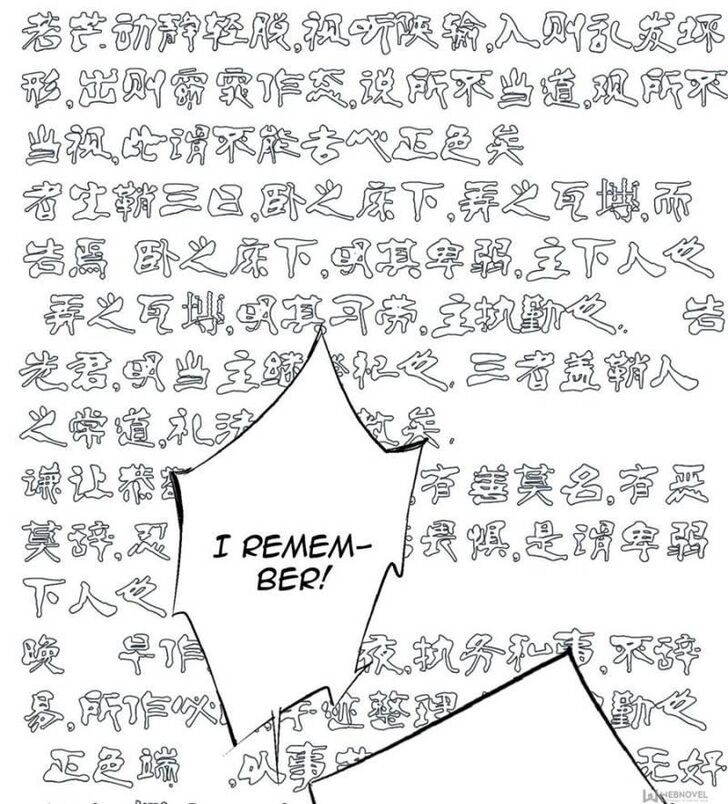 若动静轻脱,视听陕输,入则乱发坏
形,出则作态,说所不当道,观所不
当视,此谓不能去心正色矣
者生鞘三日,卧之床下,弄之瓦塼,而
告焉 卧之床下,明其卑弱,主下人也
弄之瓦塼,明其习劳,主执勤也. 告
先君,明当主祀也. 三者盖鞘人
之常道,礼法矣.
谦让恭 有善莫名,有恶
莫辞,忍 畏惧,是谓卑弱
下人也
I REMEM-
BER!
晚 早作 夜,执务私事,不辞
易,所作必 手迹整理 勤也
正色端 ,以事 无好
WEBNOVEL